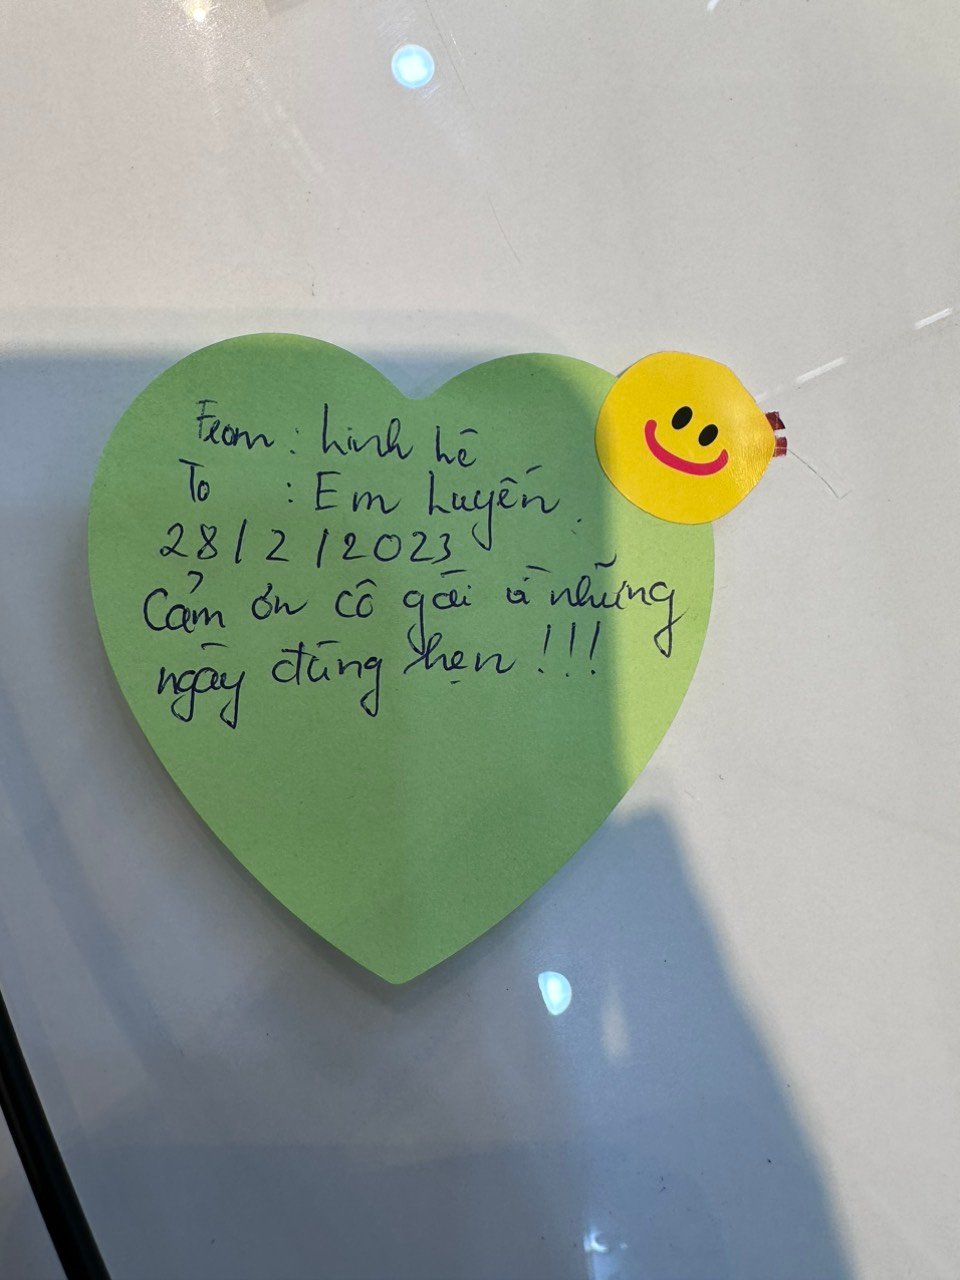 From : Linh Lê
To : Em Luyến
28/2/2023
Cảm ơn cô gái vì những
ngày đúng hẹn !!!